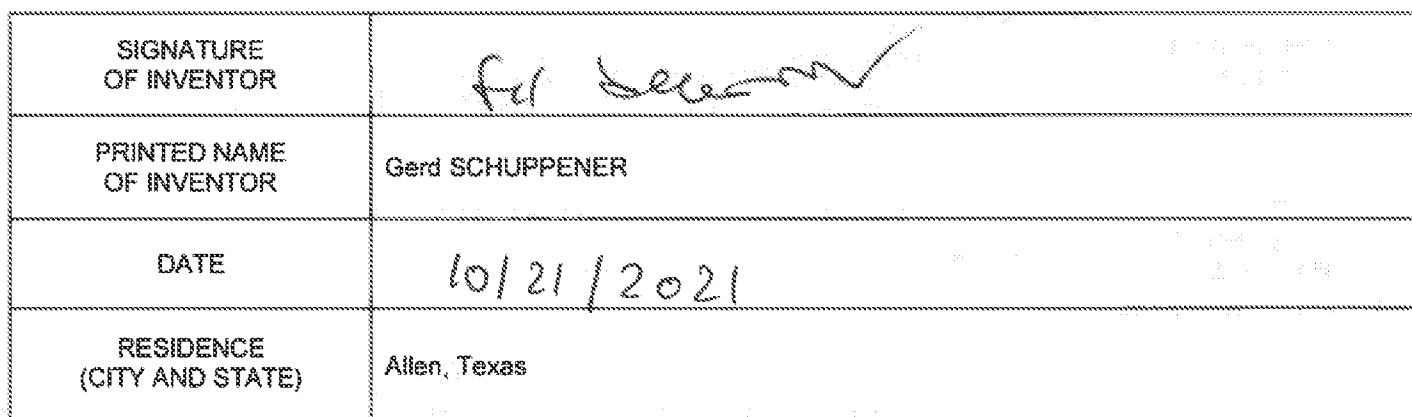 SIGNATURE
OF INVENTOR
PRINTED NAME
OF INVENTOR
Gerd SCHUPPENER
DATE
10/21/2021
RESIDENCE
(CITY AND STATE)
Allen, Texas